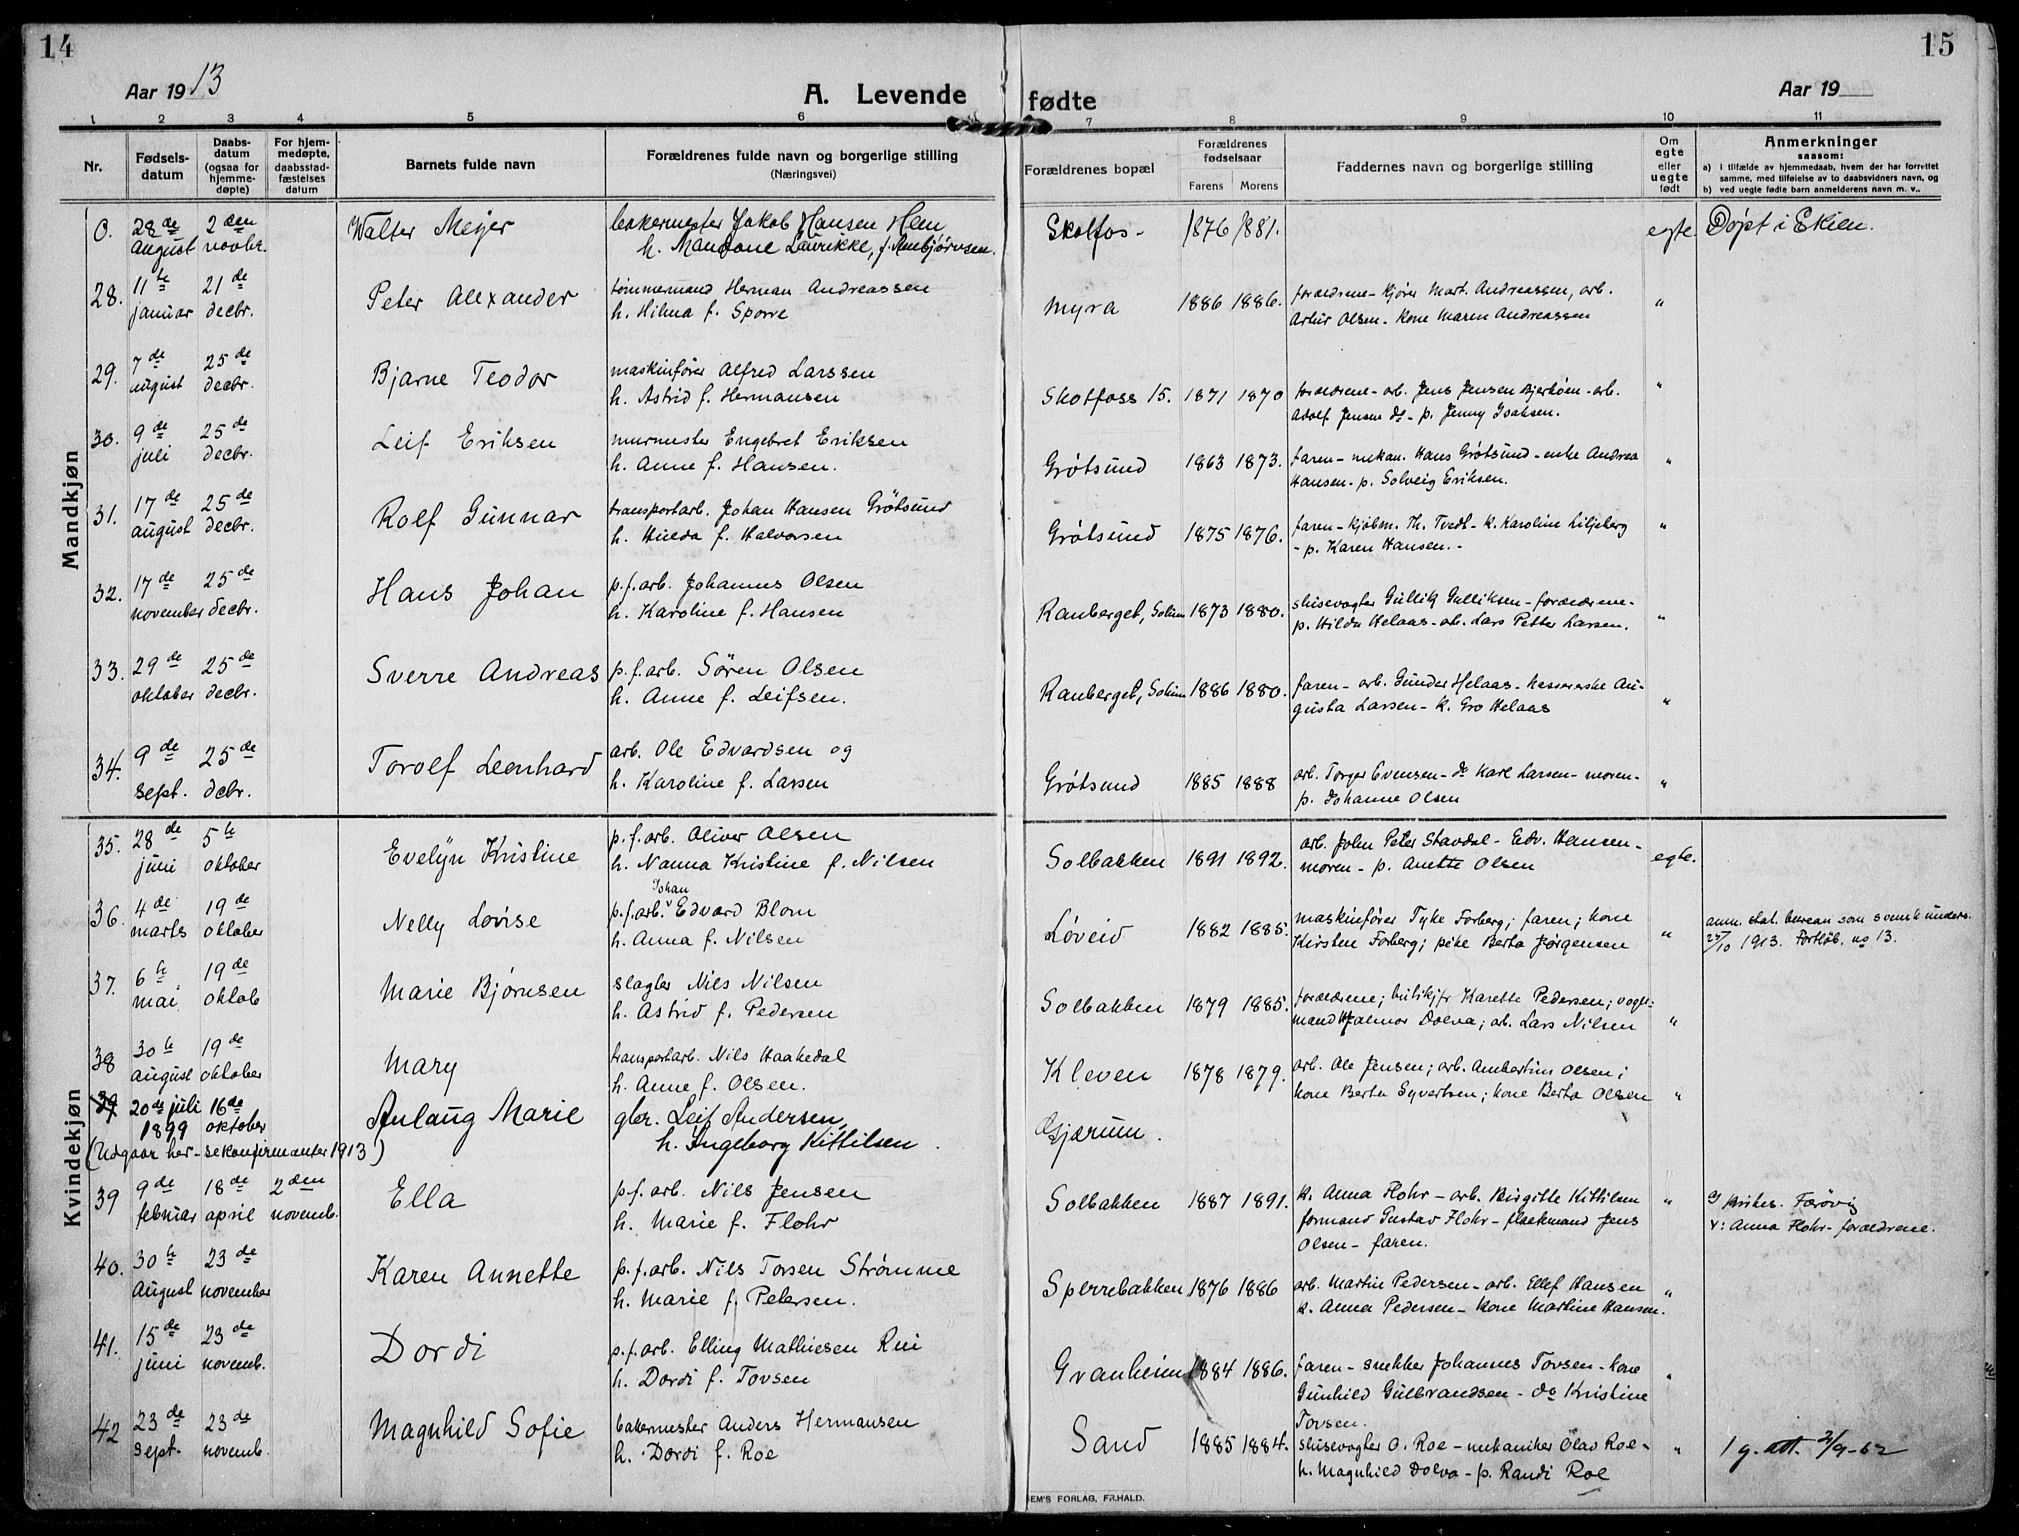 14
15
Aar 1913
A. Levende fødte
Aar 19
1 2 3 4 5 6 7 8 9 10 11
Nr.
Fødsels-
datum
Daabs-
datum
(ogsaa for
hjemme-
døpte)
For hjem-
medøpte,
daabsstad-
fæstelses
datum
Barnets fulde navn
Forældrenes fulde navn og borgerlige stilling
(Næringsvei)
Forældrenes bopæl
Forældrenes
fødselsaar
Farens Morens
Faddernes navn og borgerlige stilling
Om
egte
eller
uegte
født
Anmerkninger
saasom:
a) i tilfælde av hjemmedaab, hvem der har forrettet
samme, med tilføielse av to daabsvidners navn, og
b) ved uegte fødte barn anmelderens navn m. v..
Mandkjøn
0. 28de 2den Walter Meyer bakermester Jakob Hansen Hem Skotfos- 1876 1881. egte Døpt i Skien.
august novbr. h. Laurikke, f. Ambjørnsen.
28. 11te 21de Peter Alexander tømmermand Herman Andreassen Myra 1886 1886. forældrene- kjører Mart. Andreassen, arb. "
januar decbr. h. Hilma f. Sporre Artur Olsen- kone Maren Andreassen
29. 7de 25de Bjarne Teodor maskinfører Alfred Larssen Skotfoss 15. 1871 1870 forældrene- arb. Jens Jensen Bjerkøen- arb. "
august decbr. h. Astrid f. Hermansen Adolf Jensen do- p. Jenny Isaksen.
30. 9de 25de Leif Eriksen murmester Engebret Eriksen Grøtsund 1863 1873. faren- mekan. Hans Grøtsund- enke Andrea "
juli decbr. h. Anne f. Hansen. Hansen- p. Solveig Eriksen.
31. 17de 25de Rolf Gunnar transportarb. Johan Hansen Grøtsund Grøtsund 1875 1876. faren- kjøbm. Th. Tvedt- k. Karoline Liljeberg "
august decbr. h. Hulda f. Halvorsen - p. Karen Hansen.-
32. 17de 25de Hans Johan p.f.arb. Johannes Olsen Ranberget, Solum 1873 1880. slusevogter Gullik Gulliksen- forældrene- "
november decbr. h. Karoline f. Hansen p. Hilda Helaas- arb. Lars Petter Larsen.
33. 29de 25de Sverre Andreas p.f.arb. Søren Olsen Ranberget, Solum 1886 1880. faren- arb. Gunder Helaas- Au-
oktober decbr. h. Anne f. Leifsen. gusta Larsen- k. Gro Helaas "
34. 9de 25de Torolf Leonhard arb. Ole Edvardsen og Grøtsund 1885 1888 arb. Torger Evensen- do Karl Larsen- moren- "
sept. dcbr. h. Karoline f. Larsen p. Johanne Olsen
Kvindekjøn
35. 28de 5te Evelyn Kristine p.f.arb. Oliver Olsen Solbakken 1891 1892. arb. John Peter Stavdal- Edv. Hansen- egte.
juni oktober h. Nanna Kristine f. Nilsen moren- p. Anette Olsen
36. 4de 19de Nelly Lovise p.f.arb. Johan Edvard Blom Løveid 1882 1885. maskinfører Tyke Forberg; faren; kone " anm. stat. bureau som svensk unders.
marts oktober h. Anna f. Nilsen Kirsten Forberg; pike Berta Jørgensen 25/10 1913. Fortløb. no 13.
37. 6te 19de Marie Bjørnsen slagter Nils Nilsen Solbakken 1879 1885. forældrene; butikjfr Karette Pedersen; vogt-
mai oktob h. Astrid f. Pedersen mand Hjalmar Dolva; arb. Lars Nilsen "
38 30te 19de Mary transportarb. Nils Haakedal Kleven 1878 1879. arb. Ole Jensen; arb. Olsen;
august oktober h. Anne f. Olsen. kone Berta Syvertsen; kone Berta Olsen "
39 20de juli 16de Aulaug Marie gbr. Leif Andersen, Gjærum.
1899 oktober h. Ingeborg Kittilsen.
(Udgaar her- se konfirmanter 1913)
39 9de 18de 2den Ella p.f.arb. Nils Jensen Solbakken 1887 1891. k. Anna Flohr- arb. Birgitte Kittilsen "
februar april novemb. h. Marie f. Flohr formand Gustav Flohr- Jens
Olsen- faren. v: Anna Flohr- forældrene.
40. 30te 23de Karen Annette p.f.arb. Nils Torsen Strømme Sperrebakken 1876 1886 arb. Martin Pedersen- arb. Ellef Hansen "
August november h. Marie f. Petersen. k. Anna Pedersen- kone Martine Hansen.
41. 15de 23de Dordi p.f.arb. Elling Mathiesen Rui Granheim 1884 1886. faren- snekker Johannes Tovsen- kone "
juni novemb. h. Dordi f. Tovsen Gunhild Gulbrandsen- do Kristine
Tovsen.
42 23de 23de Magnhild Sofie bakermester Anders Hermansen Sand 1885 1884. slusevogter O. Roe- mekaniker Olav Roe- " 1 g. att. 3/9-62
sept. novemb. h. Dordi f. Roe h. Magnhild Dolva- p. Randi Roe
SEM'S FORLAG, FR.HALD.